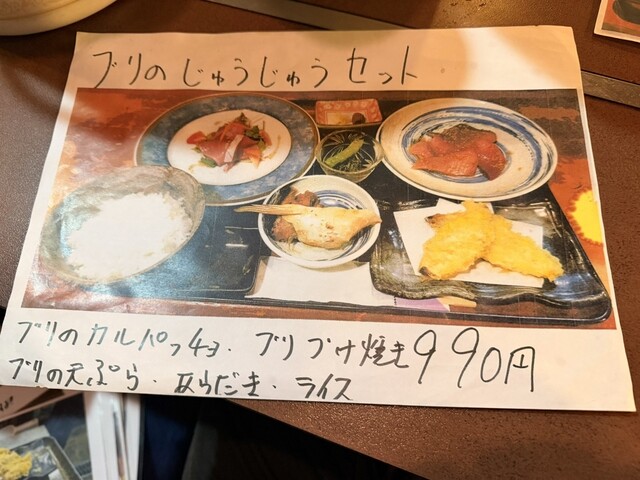 ブリのじゅうじゅうセット
ブリのカルパッチョ・ブリづけ焼き 990円
ブリの天ぷら・あらだき・ライス